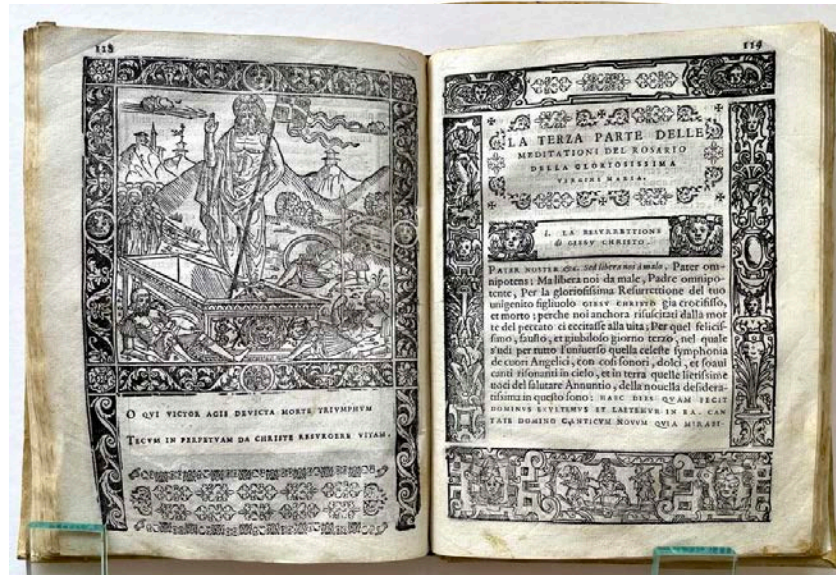 118
O QUI VICTOR AGIS DEVICTA MORTE TRIVMPHVM
TECVM IN PERPETVAM DA CHRISTE RESVRGERE VITAM.
119
LA TERZA PARTE DELLE
MEDITATIONI DEL ROSARIO
DELLA GLORIOSISSIMA
VERGINE MARIA.
i. LA RESVRRETTIONE
di GIESV CHRISTO.
PATER NOSTER &c. Sed libera nos à malo, Pater om-
nipotens: Ma libera noi da male, Padre omnipo-
tente, Per la gloriosissima Resurrettione del tuo
unigenito figliuolo GIESV CHRISTO gia crocifisso,
et morto; perche noi anchora risuscitati dalla mor
te del peccato ci eccitasse alla vita; Per quel felicis-
simo, fausto, et giubiloso giorno terzo, nel quale
s'udi per tutto l'universo quella celeste symphonia
de cuori Angelici, con cosi sonori, dolci, et soaui
canti risonanti in cielo, et in terra quelle lietissime
uoci del salutare Annuntio, della nouella desidera-
tissima in questo sono: HAEC DIES QVAM FECIT
DOMINVS EXVLTEMVS ET LAETEMVR IN EA. CAN
TATE DOMINO CANTICVM NOVVM QVIA MIRABI-